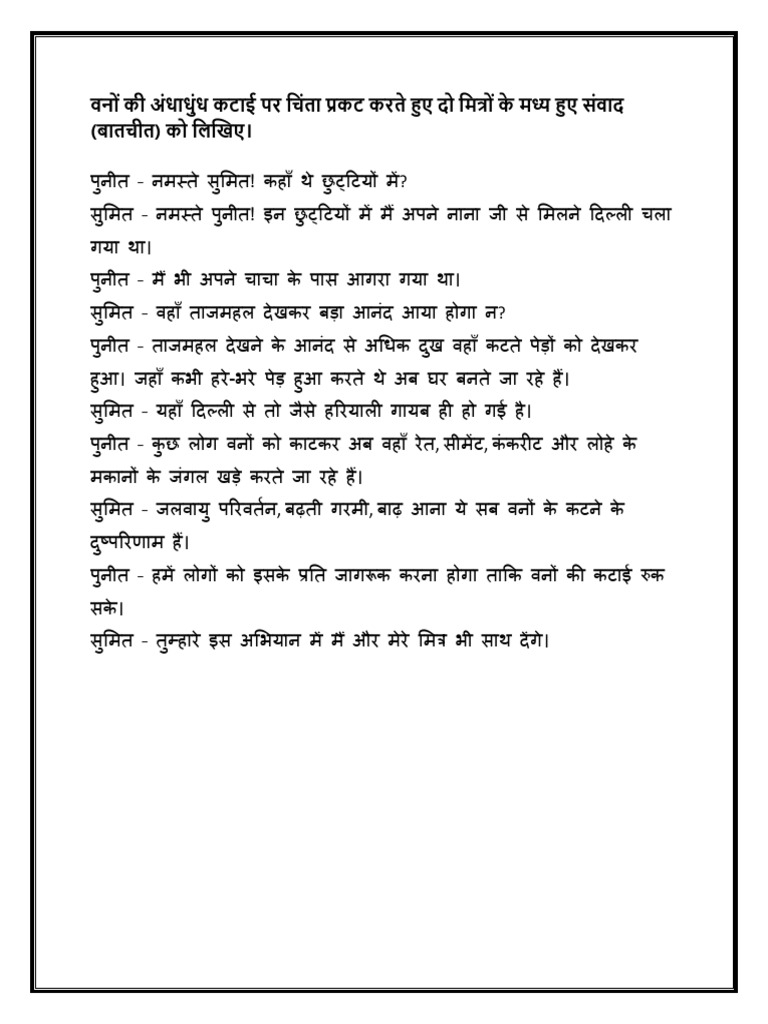 वनों की अंधाधुंध कटाई पर चिंता प्रकट करते हुए दो मित्रों के मध्य हुए संवाद
(बातचीत) को लिखिए।
पुनीत - नमस्ते सुमित! कहाँ थे छुट्टियों में?
सुमित - नमस्ते पुनीत! इन छुट्टियों में मैं अपने नाना जी से मिलने दिल्ली चला
गया था।
पुनीत - मैं भी अपने चाचा के पास आगरा गया था।
सुमित - वहाँ ताजमहल देखकर बड़ा आनंद आया होगा न?
पुनीत - ताजमहल देखने के आनंद से अधिक दुख वहाँ कटते पेड़ों को देखकर
हुआ। जहाँ कभी हरे-भरे पेड़ हुआ करते थे अब घर बनते जा रहे हैं।
सुमित - यहाँ दिल्ली से तो जैसे हरियाली गायब ही हो गई है।
पुनीत - कुछ लोग वनों को काटकर अब वहाँ रेत, सीमेंट, कंकरीट और लोहे के
मकानों के जंगल खड़े करते जा रहे हैं।
सुमित - जलवायु परिवर्तन, बढ़ती गरमी, बाढ़ आना ये सब वनों के कटने के
दुष्परिणाम हैं।
पुनीत - हमें लोगों को इसके प्रति जागरूक करना होगा ताकि वनों की कटाई रुक
सके।
सुमित - तुम्हारे इस अभियान में मैं और मेरे मित्र भी साथ देंगे।